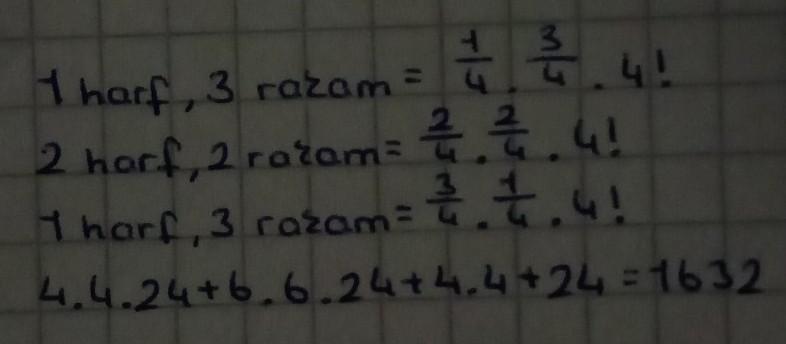 1 harf, 3 rakam = 1/4 . 3/4 . 4!
2 harf, 2 rakam = 2/4 . 2/4 . 4!
1 harf, 3 rakam = 3/4 . 1/4 . 4!
4.4.24+6.6.24+4.4+24=1632